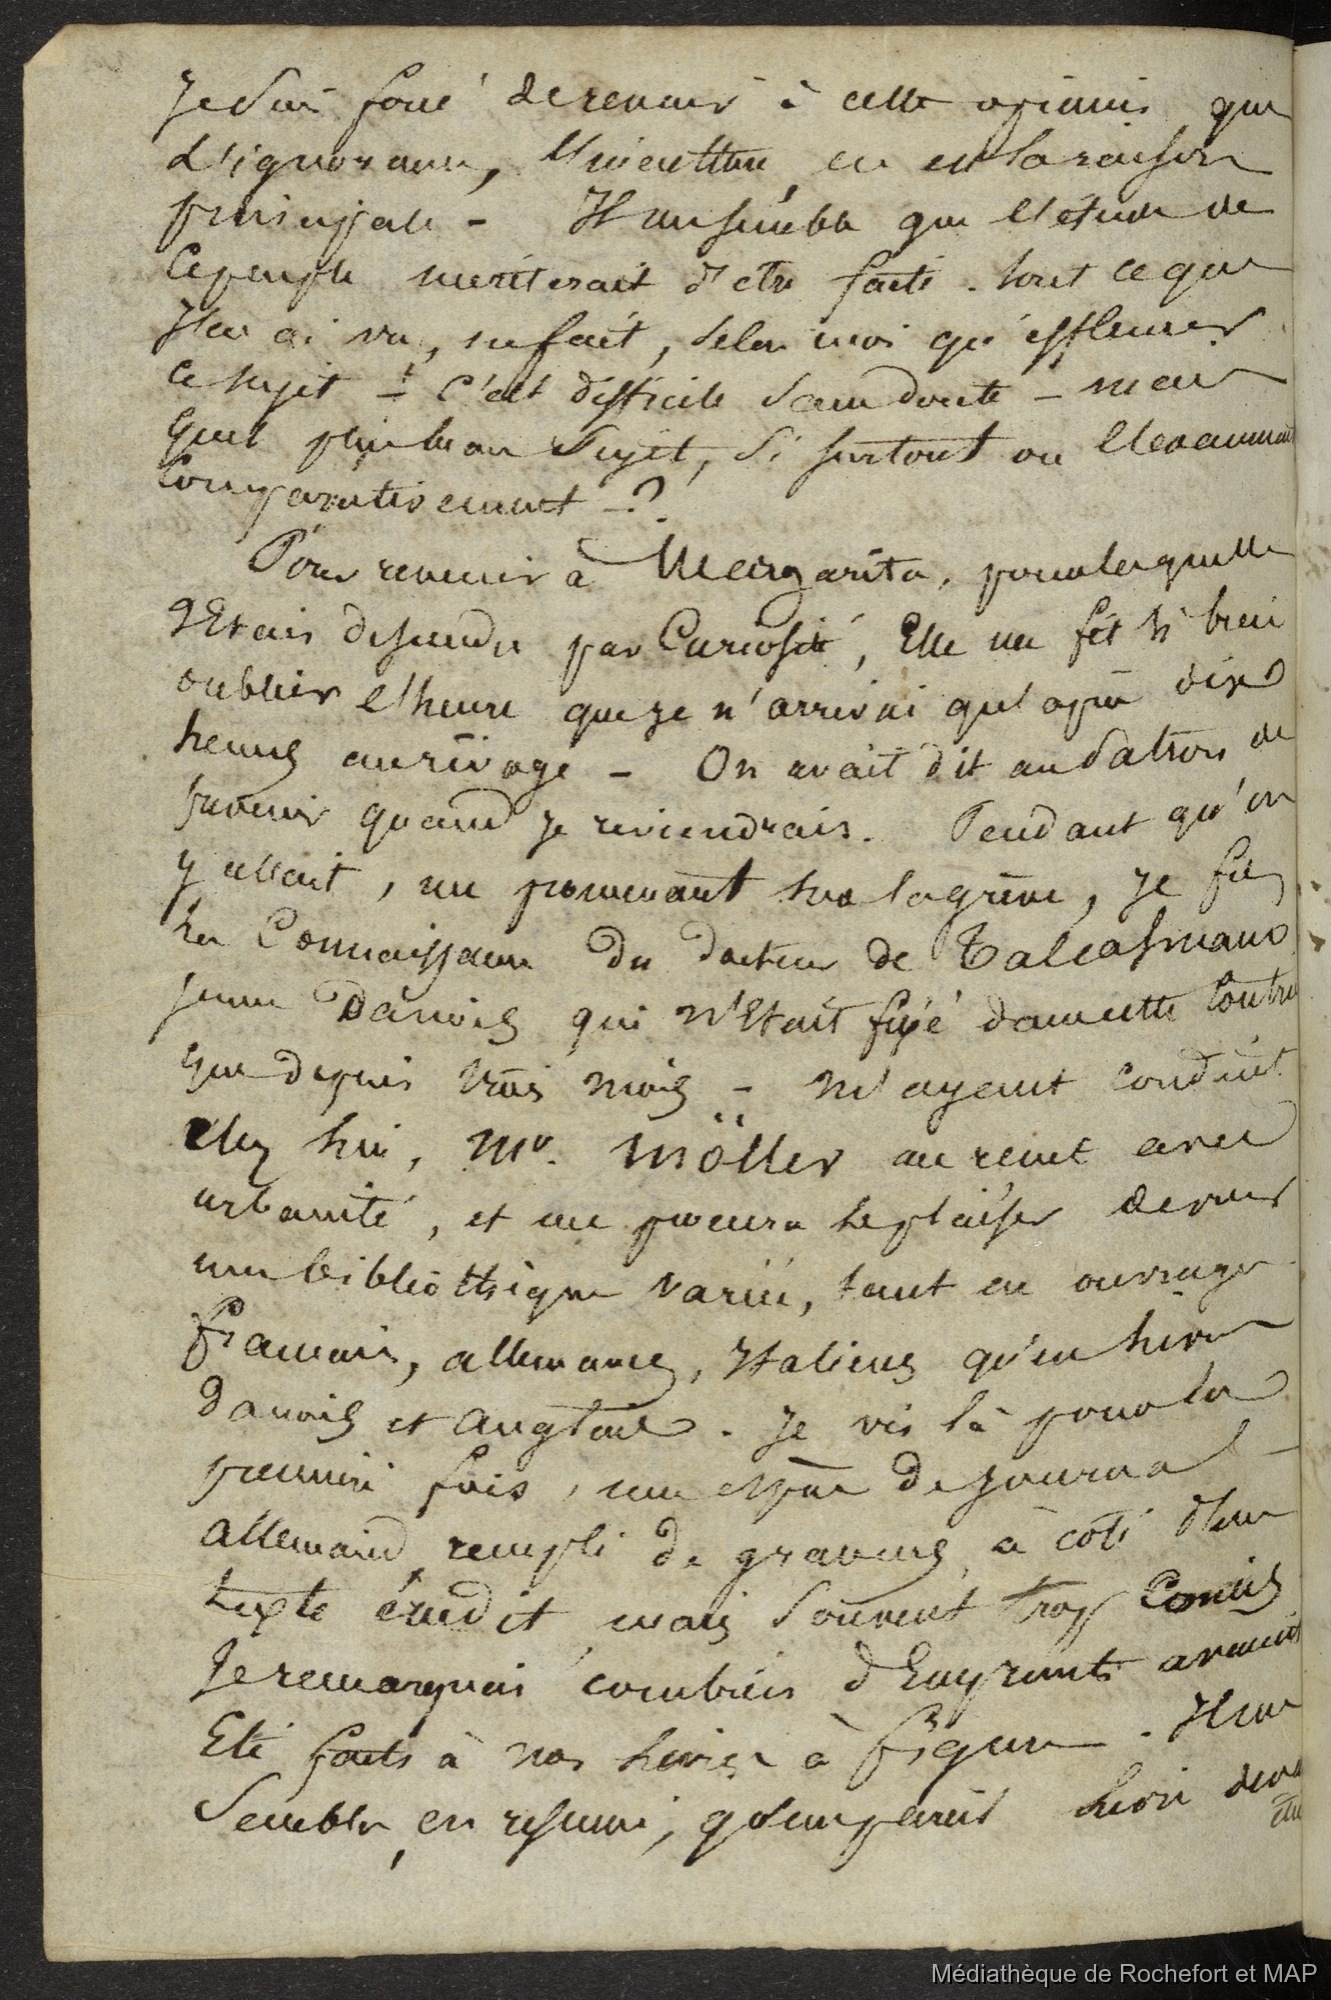 Je suis forcé de revenir à cette opinion que
l'ignorance, l'incultture, en est la raison
principale - Il me semble que l'étude de
ce peuple meriterait d'etre faite. tout ce que
J'en ai vu, ne fait, selon moi qu'effleurer
ce sujet - C'est difficile sans doute - mais
quel plus beau Sujet, si surtout on l'examinait
Comparativement - ?
Pour revenir à Margarita, pour laquelle
J'Etais descendu par Curiosité, Elle me fit si bien
oublier l'heure que je n'arrivai qu'après dix
heures au rivage - On avait dit au Patron de
revenir quand je reviendrais. Pendant qu'on
y allait, me promenant sur la grève, je fis
la Connaissance du docteur de Talcahuano
jeune Danois qui n'Etait fixé dans cette Contrée
que depuis trois mois - M'ayant conduit
chez lui, Mr. Möller me recut avec
urbanité, et me procura le plaisir de voir
une bibliothèque variée, tant en ouvrages
francais, allemands, Italiens qu'en livres
Danois et anglais. Je vis là pour la
premiere fois, une espèce de journal
allemand, rempli de gravures, à coté d'un
texte érudit, mais souvent trop Concis
Je remarquai combien d'Emprunts avaient
Eté faits à nos livres à figures. Il me
Sembla, en résumé, qu'un pareil livre devait
être
Médiathèque de Rochefort et MAP